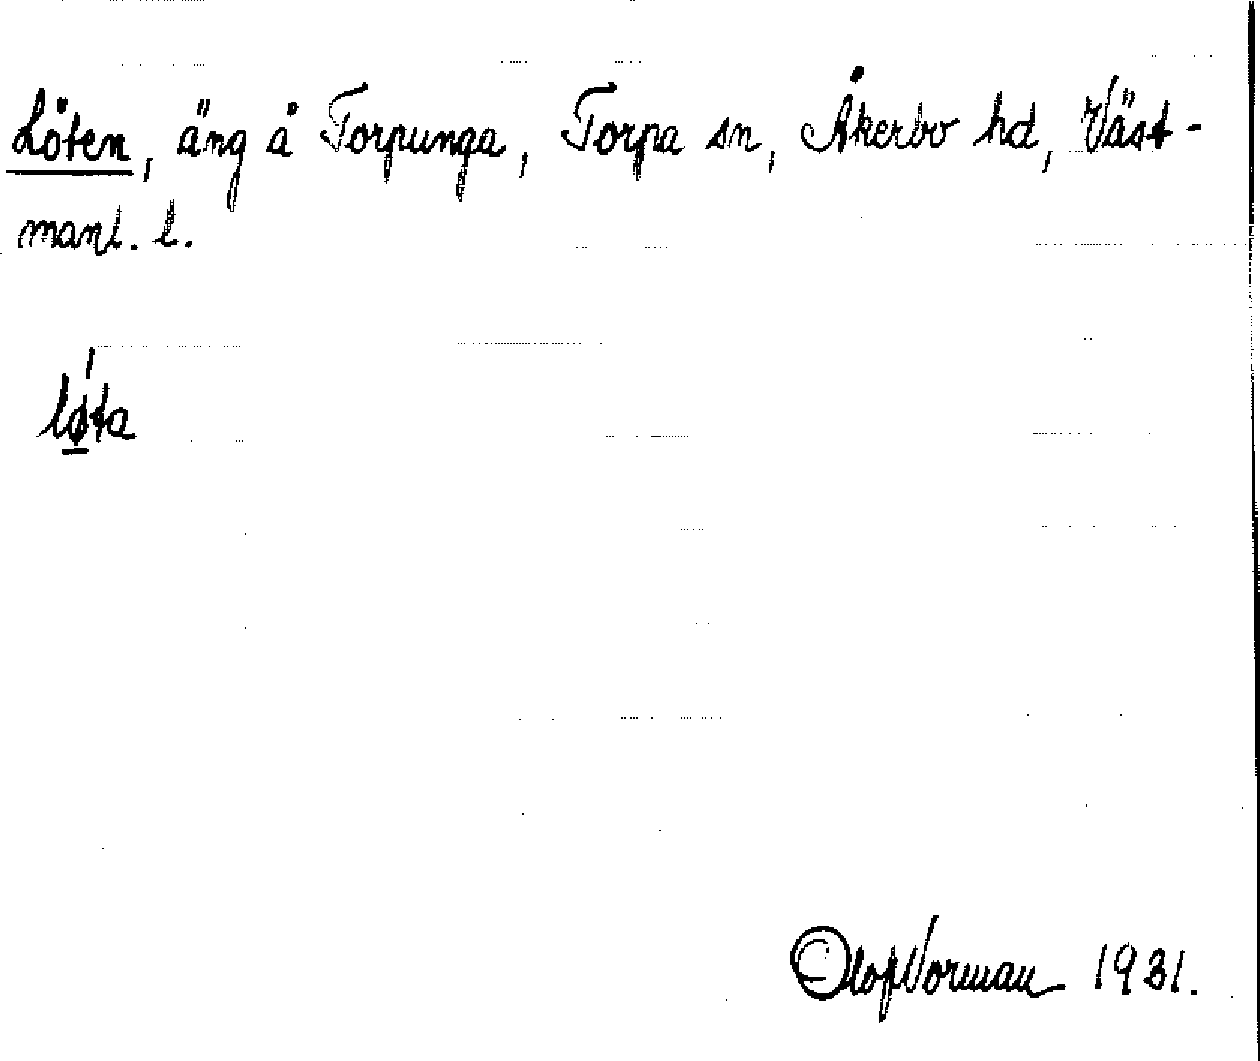 Löten, äng å Torpunga, Torpa sn, Åkerbo hd, Väst-
manl. l.
lø̲ta
Olof Norman 1931.